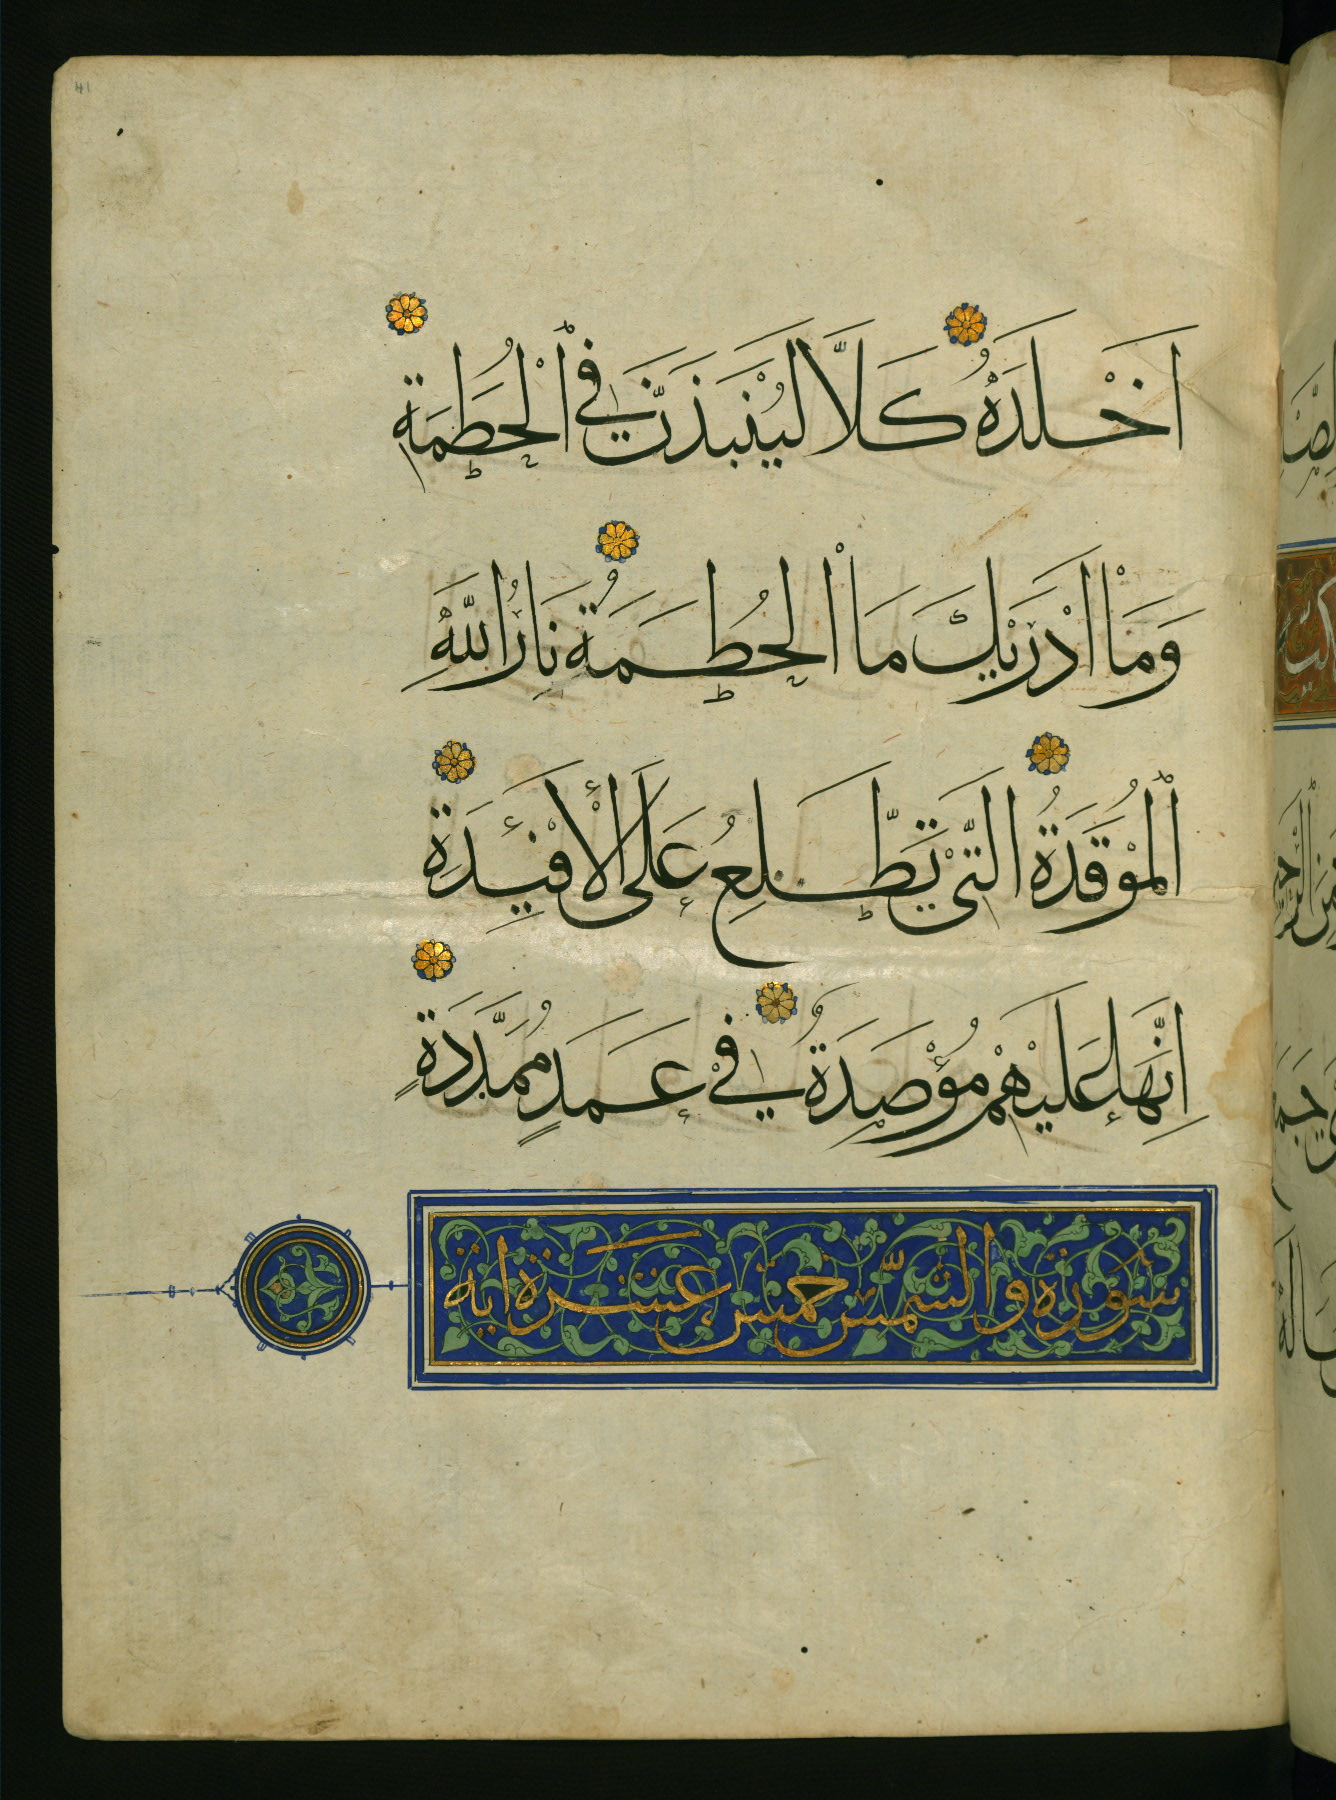 اَخْلَدَهُ كَلاَّ لَيُنْبَذَنَّ فِي اْلْحُطَمَةِ
وَمَاْ اَدْرَيٰكَ مَا اْلْحُطَمَةُ نَارُ اللّٰهِ
اْلْمُوْقَدَةُ الَّتِىْ تَطَّلِعُ عَلَى الْأَفْئِدَةِ
اِنَّهَا عَلَيْهِمْ مُؤْصَدَةٌ فِيْ عَمَدٍ مُمَدَّدَةٍ
سورة والشمس خمس عشرة اية
41